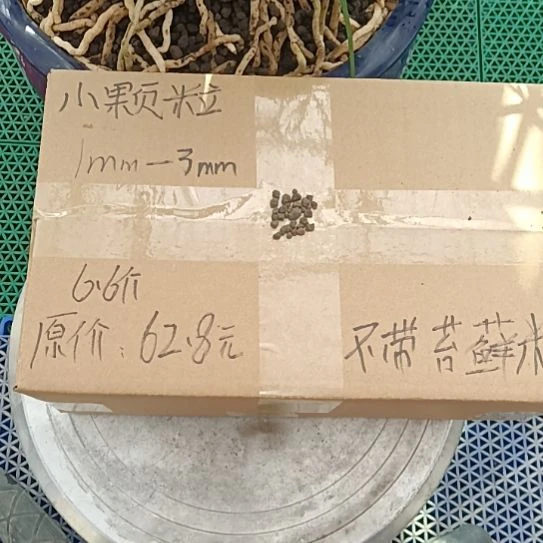 小颗页粒
1mm—3mm
6.6斤
原价：62.8元
不带苔藓